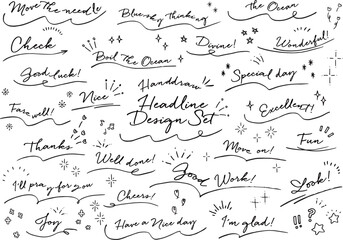 Move the needle
Blue sky Thinking
the Ocean
Check
Divine!
Wonderful!
Boil The Ocean
Good luck!
Special day
Nice
Handdraw
Headline
Design Set
Fare well!
Excellent!
Thanks
Well done!
Move on!
Fun
Good Work!
I'll pray for you
Cheers!
Look!
Joy
Have a Nice day
I'm glad!
!!
?